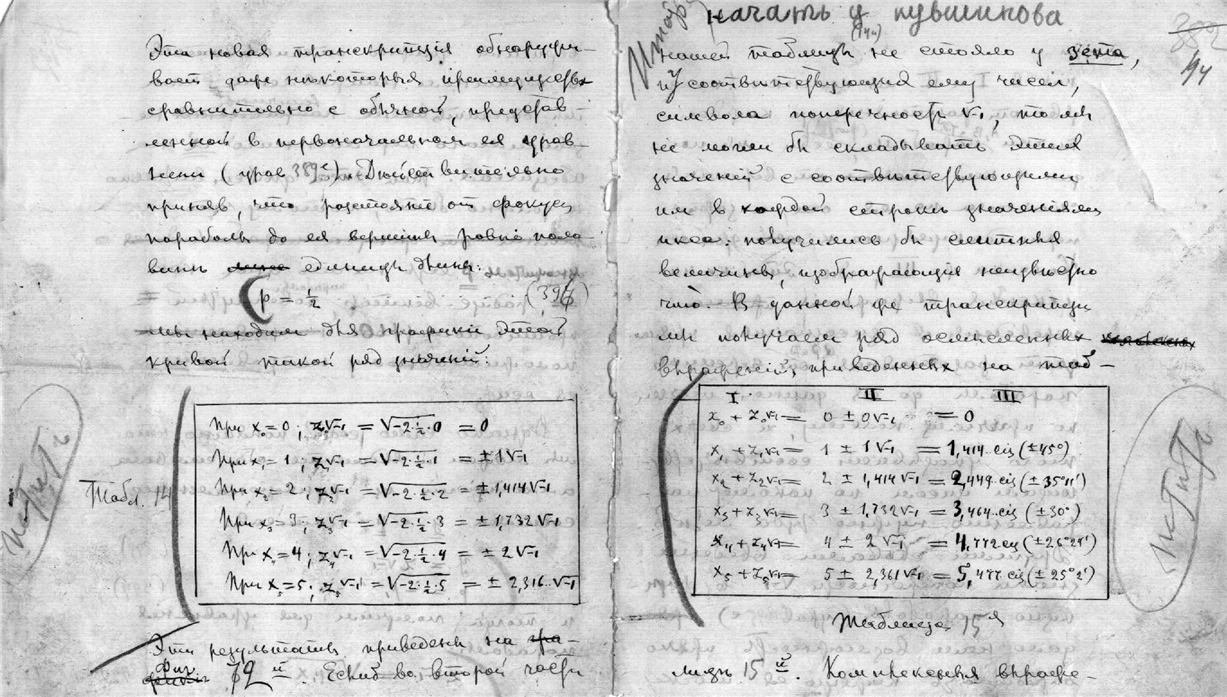 Эта новая транскрипція обнаружи-
ваетъ даже нѣкоторыя преимущества
сравнительно с обычной, представ-
ленной в первоначальном ея урав-
неніи (урав 389е). Дѣйствительно
принявъ, что разстояніе от фокуса
параболы до ея вершины равно поло
винѣ единицы длины:
p = 1/2 (396)
мы находим для графики этой
кривой такой ряд значеній:
При x₀=0; z₀√-1 = √-2·½·0 = 0
При x₁=1; z₁√-1 = √-2·½·1 = ±1√-1
Табл. 14
При x₂=2; z₂√-1 = √-2·½·2 = ±1,414√-1
При x₃=3; z₃√-1 = √-2·½·3 = ±1,732√-1
При x₄=4; z₄√-1 = √-2·½·4 = ±2√-1
При x₅=5; z₅√-1 = √-2·½·5 = ±2,316·√-1
Эти результаты приведены на
Фиг. 72й. Еслиб во второй части
начать у Кувшинова
нашей таблицы (14й) не стояло у зета,
и у соотвѣтствующих ему чисел,
символа поперечности √-1, то мы
не могли бы складывать этих
значеній с соотвѣтствующими
им в каждой строкѣ значеніями
икса: получились бы слитныя
величины, изображающія неизвѣстно
что. В данной же транскрипціи
мы получаем ряд осмысленных
выраженій, приведенных на таб-
I II III
x₀ + z₀√-1 = 0 ± 0√-1 = 0
x₁ + z₁√-1 = 1 ± 1√-1 = 1,414·cis(±45°)
x₂ + z₂√-1 = 2 ± 1,414√-1 = 2,449·cis(±35°11')
x₃ + z₃√-1 = 3 ± 1,732√-1 = 3,464·cis(±30°)
x₄ + z₄√-1 = 4 ± 2√-1 = 4,472cis(±26°24')
x₅ + z₅√-1 = 5 ± 2,361√-1 = 5,477·cis(±25°2')
Таблица 15я
лицѣ 15й. Комплексныя выраже-